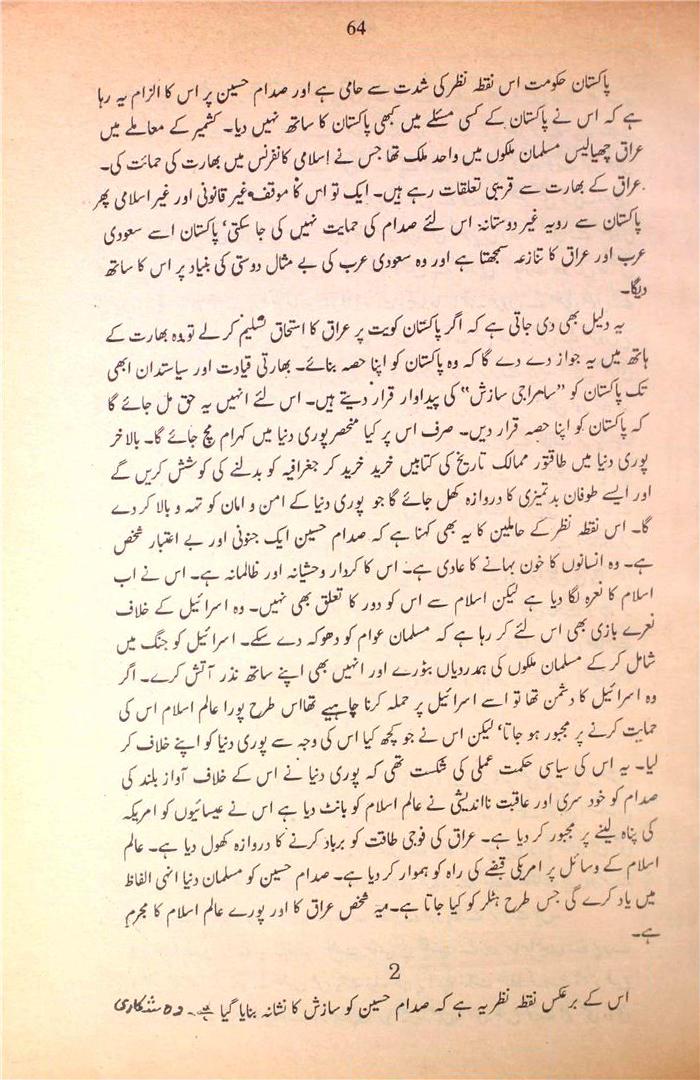 64
پاکستان حکومت اس نقطہ نظر کی شدت سے حامی ہے اور صدام حسین پر اس کا الزام یہ رہا
ہے کہ اس نے پاکستان کے کسی مسئلے میں کبھی پاکستان کا ساتھ نہیں دیا۔ کشمیر کے معاملے میں
عراق چھیالیس مسلمان ملکوں میں واحد ملک تھا جس نے اسلامی کانفرنس میں بھارت کی حمائت کی۔
عراق کے بھارت سے قریبی تعلقات رہے ہیں۔ ایک تو اس کا موقف غیر قانونی اور غیر اسلامی پھر
پاکستان سے رویہ غیر دوستانہ اس لئے صدام کی حمایت نہیں کی جا سکتی‘ پاکستان اسے سعودی
عرب اور عراق کا تنازعہ سمجھتا ہے اور وہ سعودی عرب کی بے مثال دوستی کی بنیاد پر اس کا ساتھ
دیگا۔
یہ دلیل بھی دی جاتی ہے کہ اگر پاکستان کویت پر عراق کا استحاق تسلیم کر لے تو وہ بھارت کے
ہاتھ میں یہ جواز دے دے گا کہ وہ پاکستان کو اپنا حصہ بنائے۔ بھارتی قیادت اور سیاستدان ابھی
تک پاکستان کو ’’سامراجی سازش‘‘ کی پیداوار قرار دیتے ہیں۔ اس لئے انہیں یہ حق مل جائے گا
کہ پاکستان کو اپنا حصہ قرار دیں۔ صرف اس پر کیا منحصر پوری دنیا میں کہرام مچ جائے گا۔ بالاخر
پوری دنیا میں طاقتور ممالک تاریخ کی کتابیں خرید خرید کر جغرافیہ کو بدلنے کی کوشش کریں گے
اور ایسے طوفان بدتمیزی کا دروازہ کھل جائے گا جو پوری دنیا کے امن و امان کو تہہ و بالا کر دے
گا۔ اس نقطہ نظر کے حاملین کا یہ بھی کہنا ہے کہ صدام حسین ایک جنونی اور بے اعتبار شخص
ہے۔ وہ انسانوں کا خون بہانے کا عادی ہے۔ اس کا کردار وحشیانہ اور ظالمانہ ہے۔ اس نے اب
اسلام کا نعرہ لگا دیا ہے لیکن اسلام سے اس کو دور کا تعلق بھی نہیں۔ وہ اسرائیل کے خلاف
نعرے بازی بھی اس لئے کر رہا ہے کہ مسلمان عوام کو دھوکہ دے سکے۔ اسرائیل کو جنگ میں
شامل کر کے مسلمان ملکوں کی ہمدردیاں بٹورے اور انہیں بھی اپنے ساتھ نذر آتش کرے۔ اگر
وہ اسرائیل کا دشمن تھا تو اسے اسرائیل پر حملہ کرنا چاہیے تھا اس طرح پورا عالم اسلام اس کی
حمایت کرنے پر مجبور ہو جاتا‘ لیکن اس نے جو کچھ کیا اس کی وجہ سے پوری دنیا کو اپنے خلاف کر
لیا۔ یہ اس کی سیاسی حکمت عملی کی شکست تھی کہ پوری دنیا نے اس کے خلاف آواز بلند کی
صدام کو خود سری اور عاقبت نااندیشی نے عالم اسلام کو بانٹ دیا ہے اس نے عیسائیوں کو امریکہ
کی پناہ لینے پر مجبور کر دیا ہے۔ عراق کی فوجی طاقت کو برباد کرنے کا دروازہ کھول دیا ہے۔ عالم
اسلام کے وسائل پر امریکی قبضے کی راہ کو ہموار کر دیا ہے۔ صدام حسین کو مسلمان دنیا انہی الفاظ
میں یاد کرے گی جس طرح ہٹلر کو کیا جاتا ہے۔ یہ شخص عراق کا اور پورے عالم اسلام کا مجرم
ہے۔
2
اس کے برعکس نقطہ نظر یہ ہے کہ صدام حسین کو سازش کا نشانہ بنایا گیا ہے۔ وہ شکاری